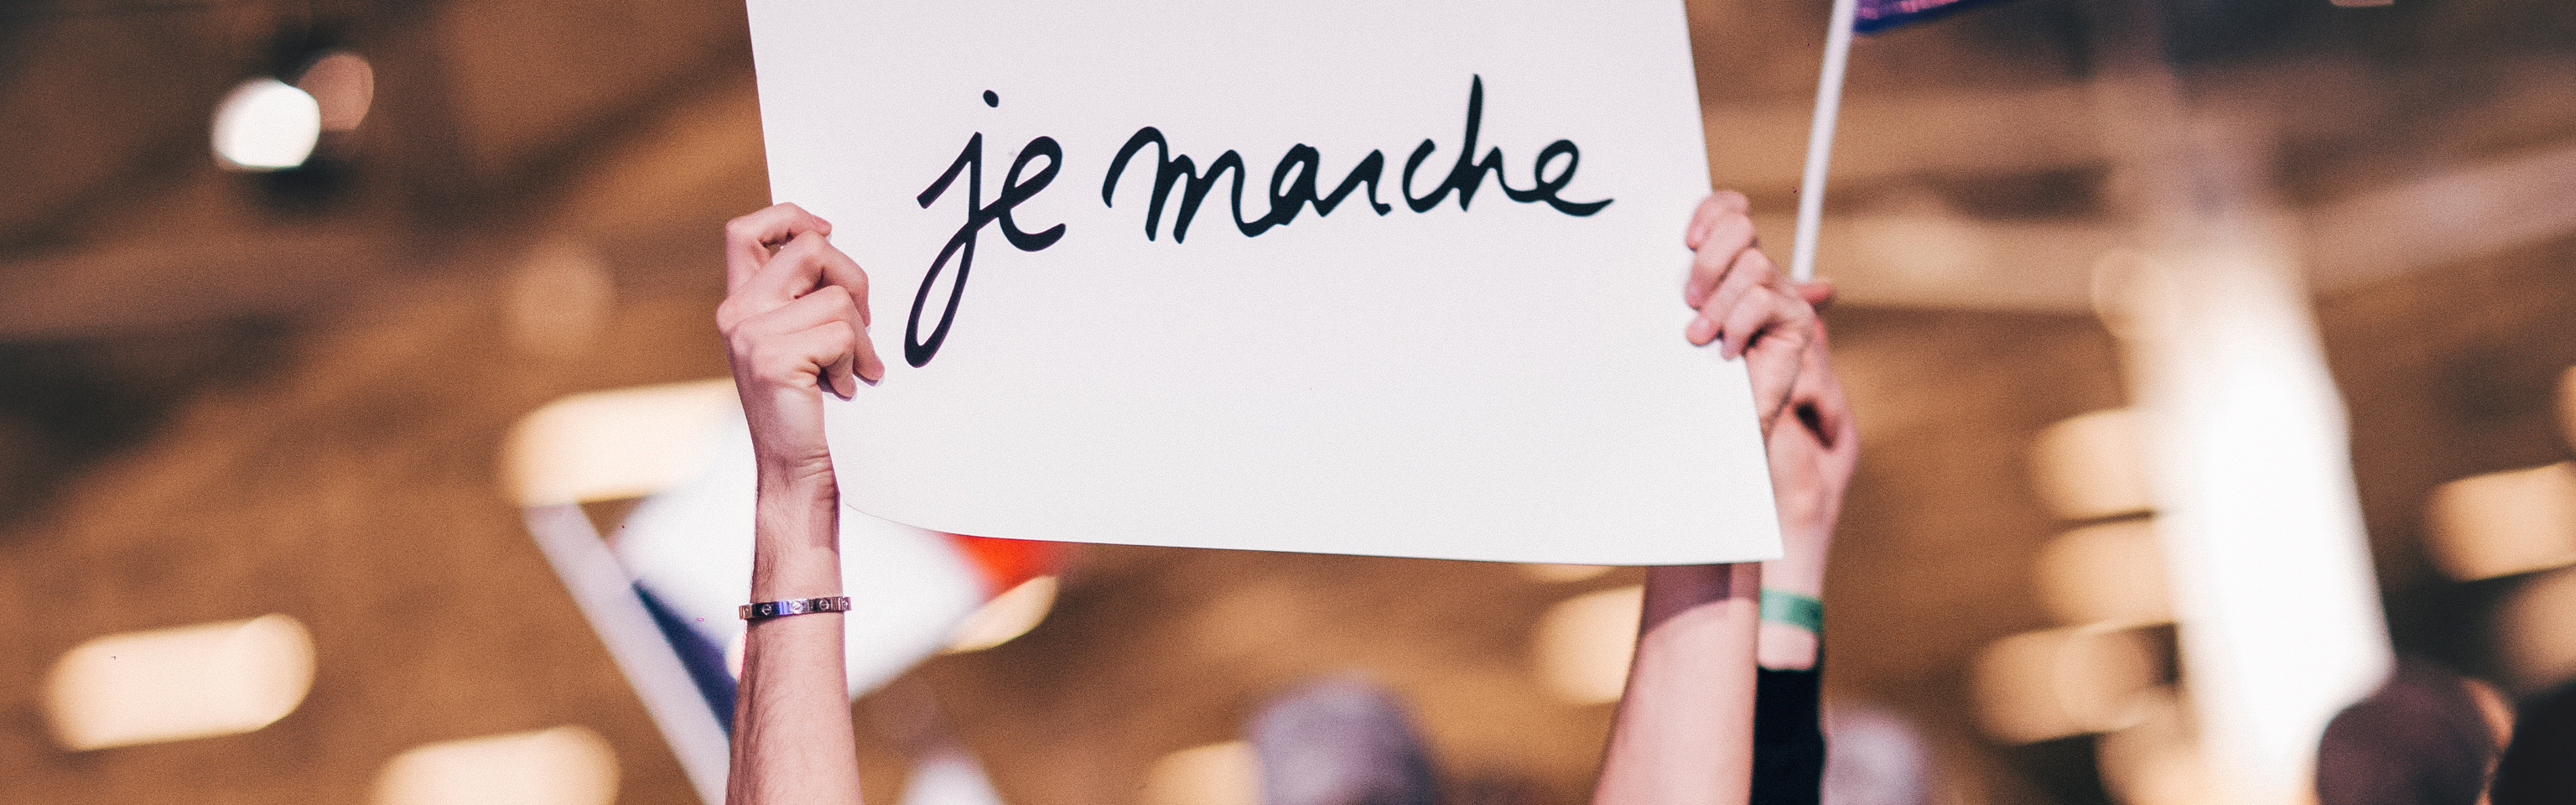 je marche